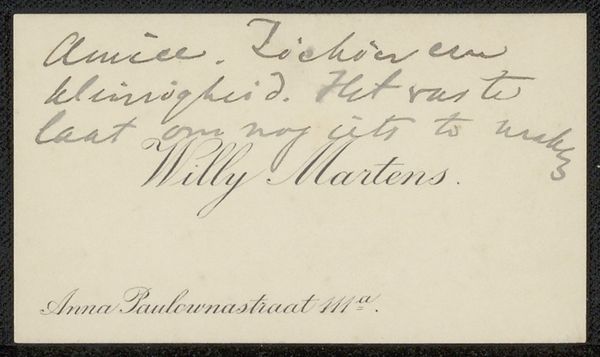 Amice. Ziehier een
kleinigheid. Het was te
laat om nog iets te maken
Willy Martens.
Anna Paulownastraat 111a.